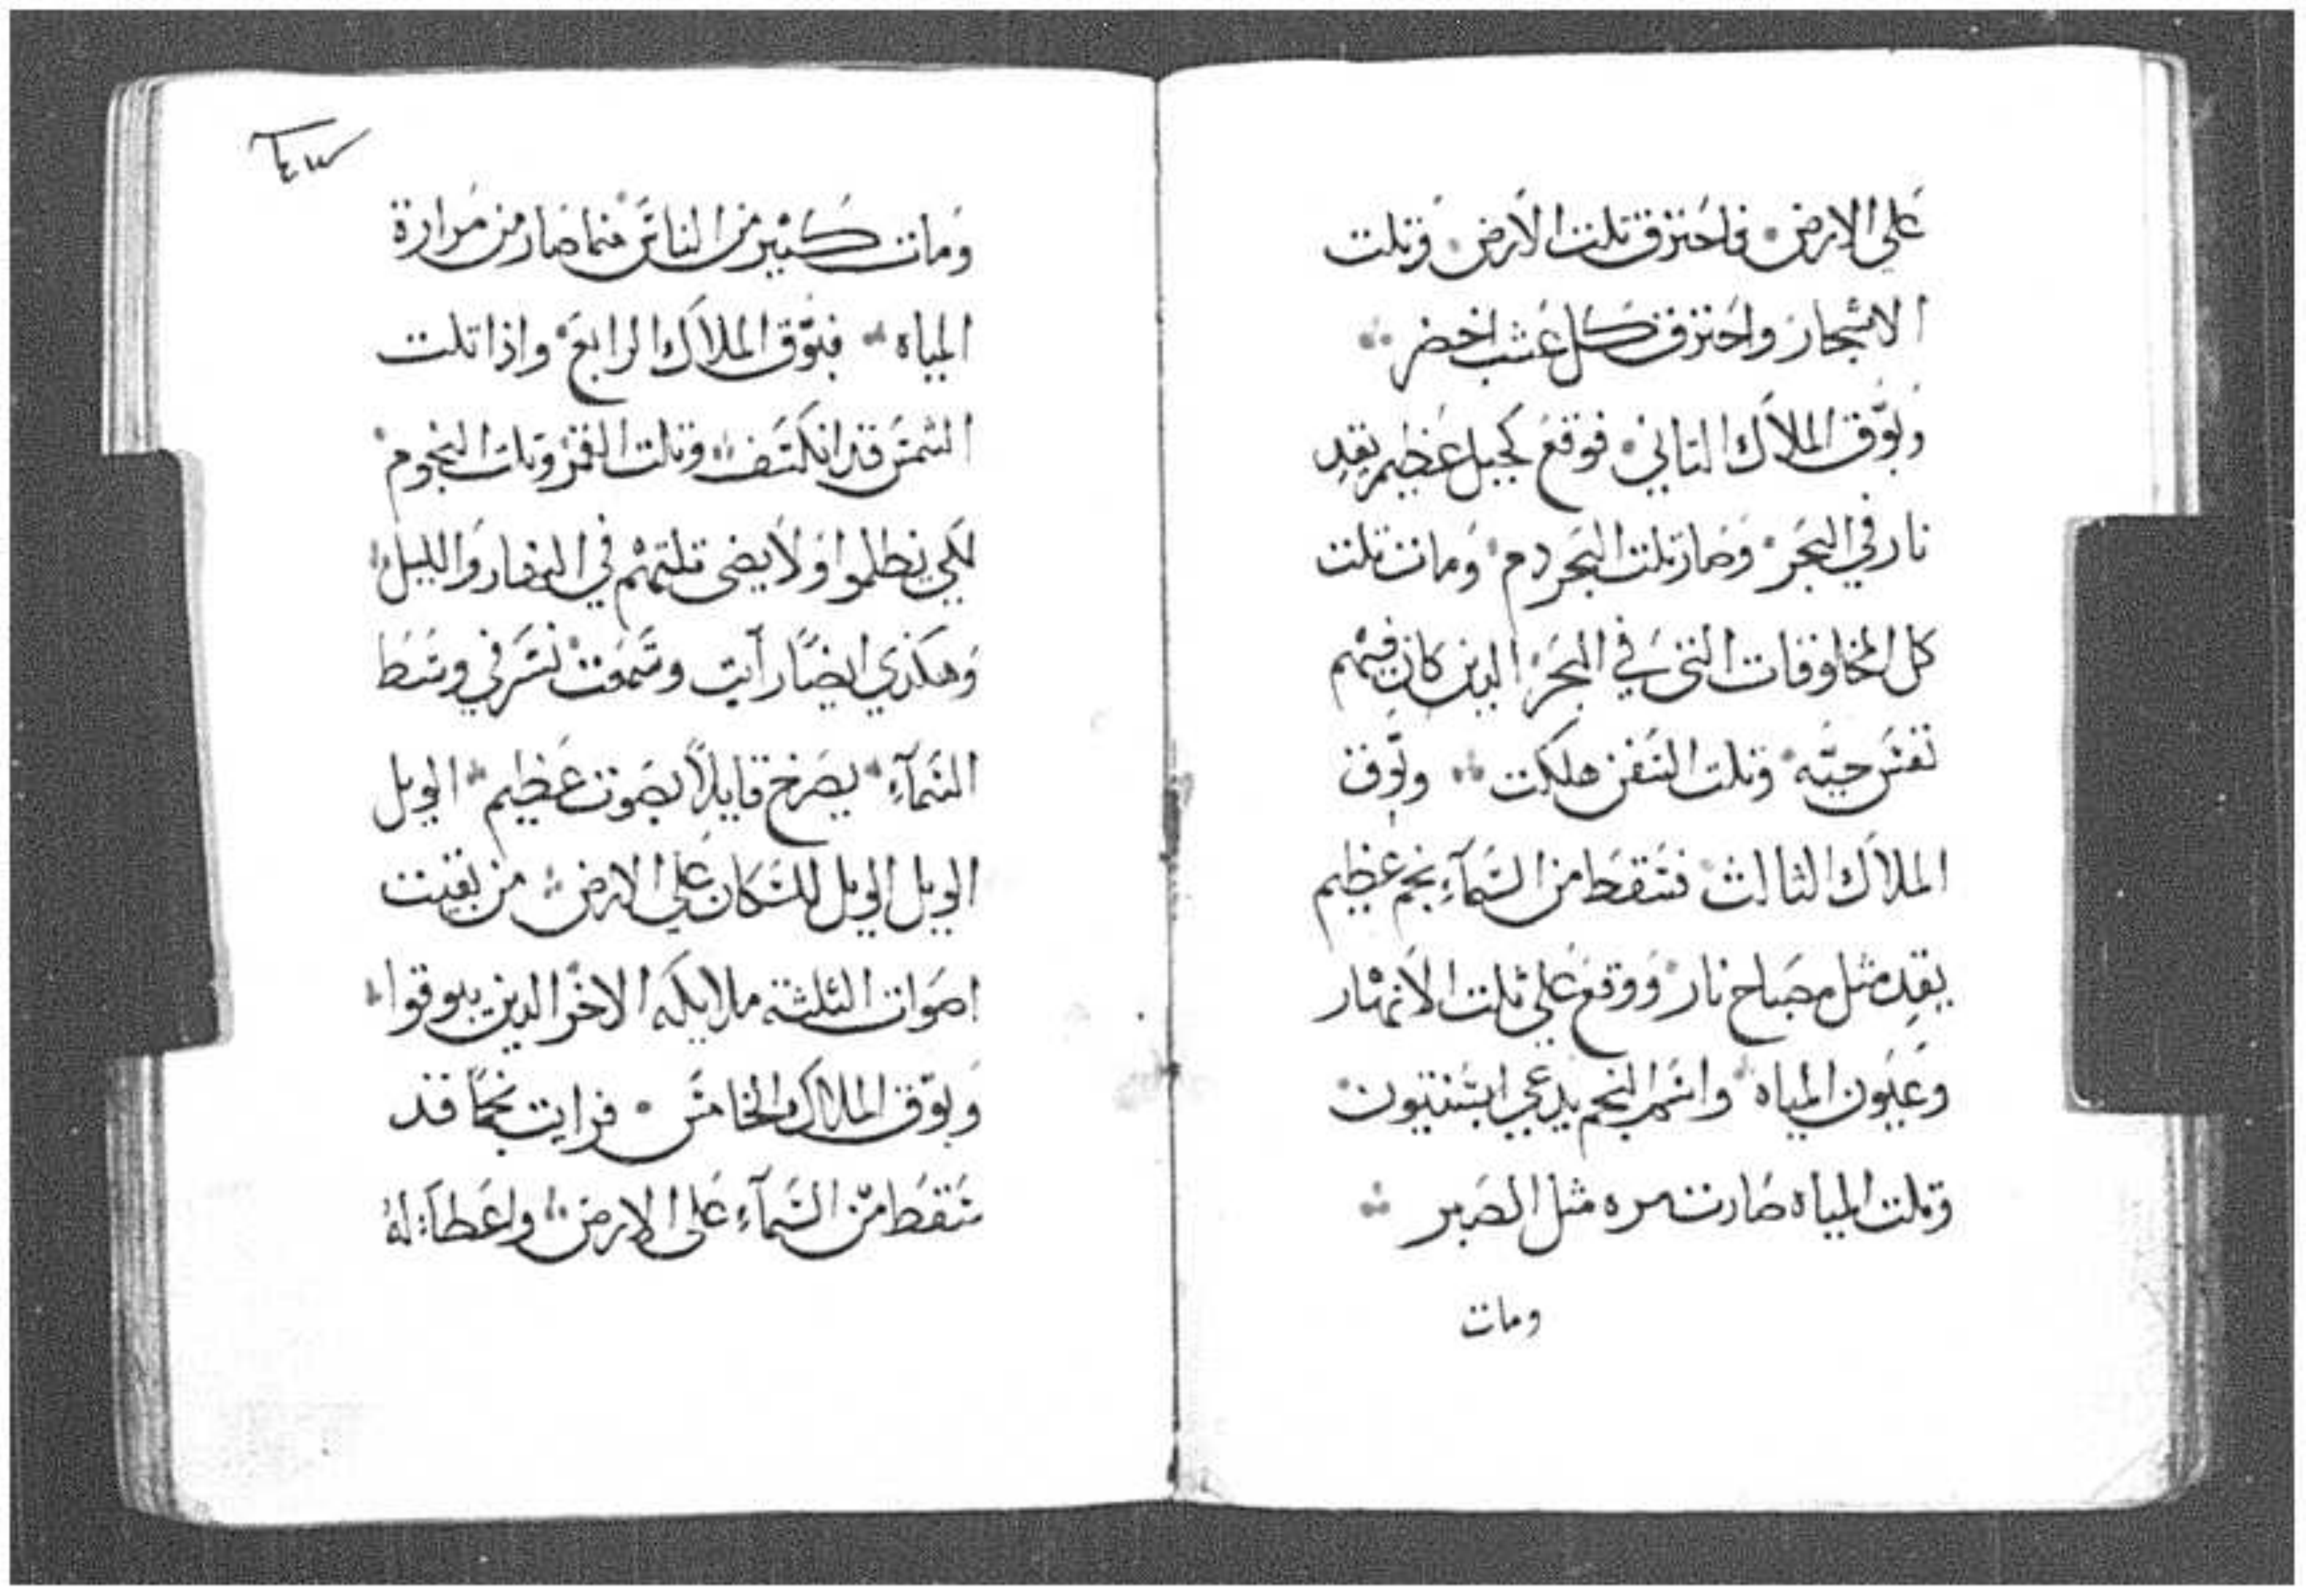 على الارض فاحترق تلت الارض وتلت
الاشجار واحترق كل عشب اخضر
وبوّق الملاك التاني فوقع كجبل عظيم يقد
نار في البحر وصار تلت البحر دم وماتت تلت
كل المخلوقات التي في البحر الدين كان فيهم
نفس حيّه وتلت السفن هلكت وبوّق
الملاك الثالث فسقط من السمآء نجم عظيم
يقد مثل مصباح نار ووقع على تلت الانهار
وعيون المياه واسم النجم يدعي ابسنتيون
وتلت المياه صارت مره مثل الصبر
ومات
ومات كثير من الناس مما صار من مرارة
المياه فبوّق الملاك الرابع واذا تلت
الشمس قد انكسف وتلت القمر وتلت النجوم
لكي يظلموا ولا يضي تلتهم في النهار والليل
وهكذي ايضًا رايت وسمعت نسر في وسط
السمآء يصرخ قايلاً بصوت عظيم الويل
الويل الويل للسكان على الارض من بقيت
اصوات الثلثة ملايكه الاخر الدين يبوقوا
وبوّق الملاك الخامس فرايت نجمًا قد
سقط من السمآء على الارض واعطآء له